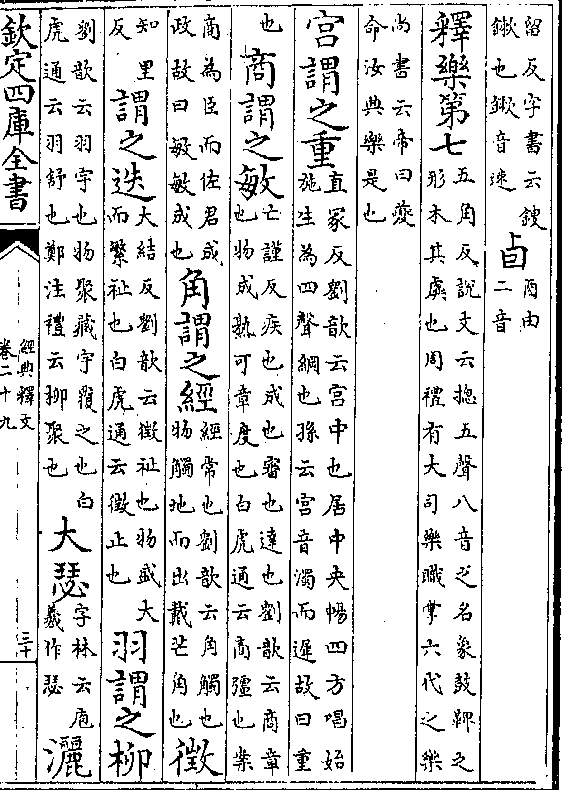 留反字書云鎪
鏉也鏉音速
卣
酉由
二音
釋樂第七
五角反説文云揔五聲八音之名象鼓鞞之
形木其虡也周禮有大司樂職掌六代之樂
尚書云帝曰夔
命汝典樂是也
宫謂之重
直冢反劉歆云宫中也居中央暢四方唱始
施生為四聲綱也孫云宫音濁而遲故曰重
也
商謂之敏
亡謹反疾也成也審也達也劉歆云商章
也物成熟可章度也白虎通云商彊也案
商為臣而佐君成
政故曰敏敏成也
角謂之經
經常也劉歆云角觸也
物觸地而出戴芒角也
徵
知里
反
謂之迭
大結反劉歆云徵祉也物盛大
而繁祉也白虎通云徵止也
羽謂之柳
劉歆云羽宇也物聚藏宇覆之也白
虎通云羽舒也鄭注禮云柳聚也
大瑟
字林云庖
羲作瑟
灑
欽定四庫全書
經典釋文
卷二十九
三十